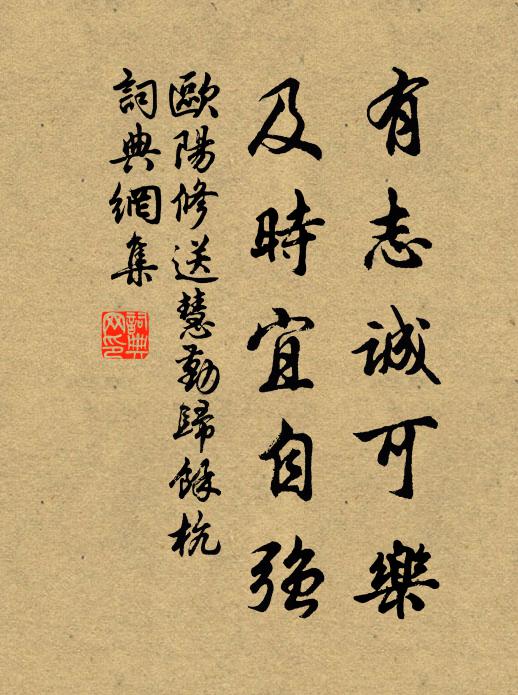 有志誠可樂
及時宜自强
歐陽修送慧勤歸餘杭
詞典網集
詞典網印